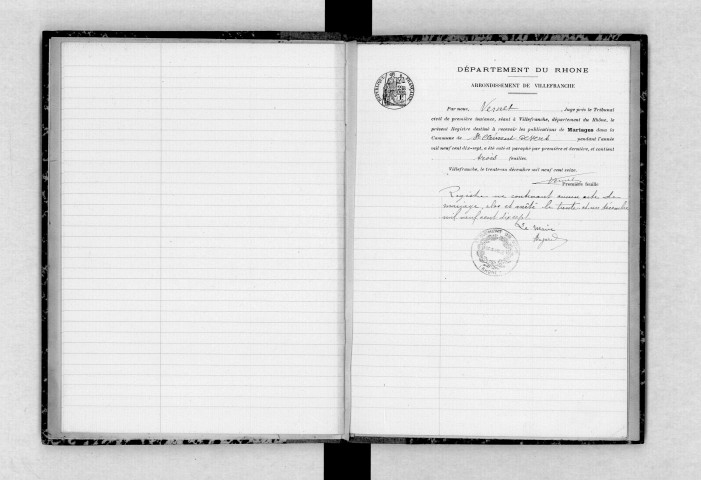 DÉPARTEMENT DU RHONE
ARRONDISSEMENT DE VILLEFRANCHE
Par nous, Vernet, Juge près le Tribunal
civil de première instance, séant à Villefranche, département du Rhône, le
présent Registre destiné à recevoir les publications de Mariages dans la
Commune de St Clément pendant l'année
mil neuf cent dix-sept, a été coté et paraphé par première et dernière, et contient
trois feuilles.
Villefranche, le trente-un décembre mil neuf cent seize.
Première feuille
Registre ne contenant aucun acte de
mariage, clos et arrêté le trente et un décembre
mil neuf cent dix sept
Le maire